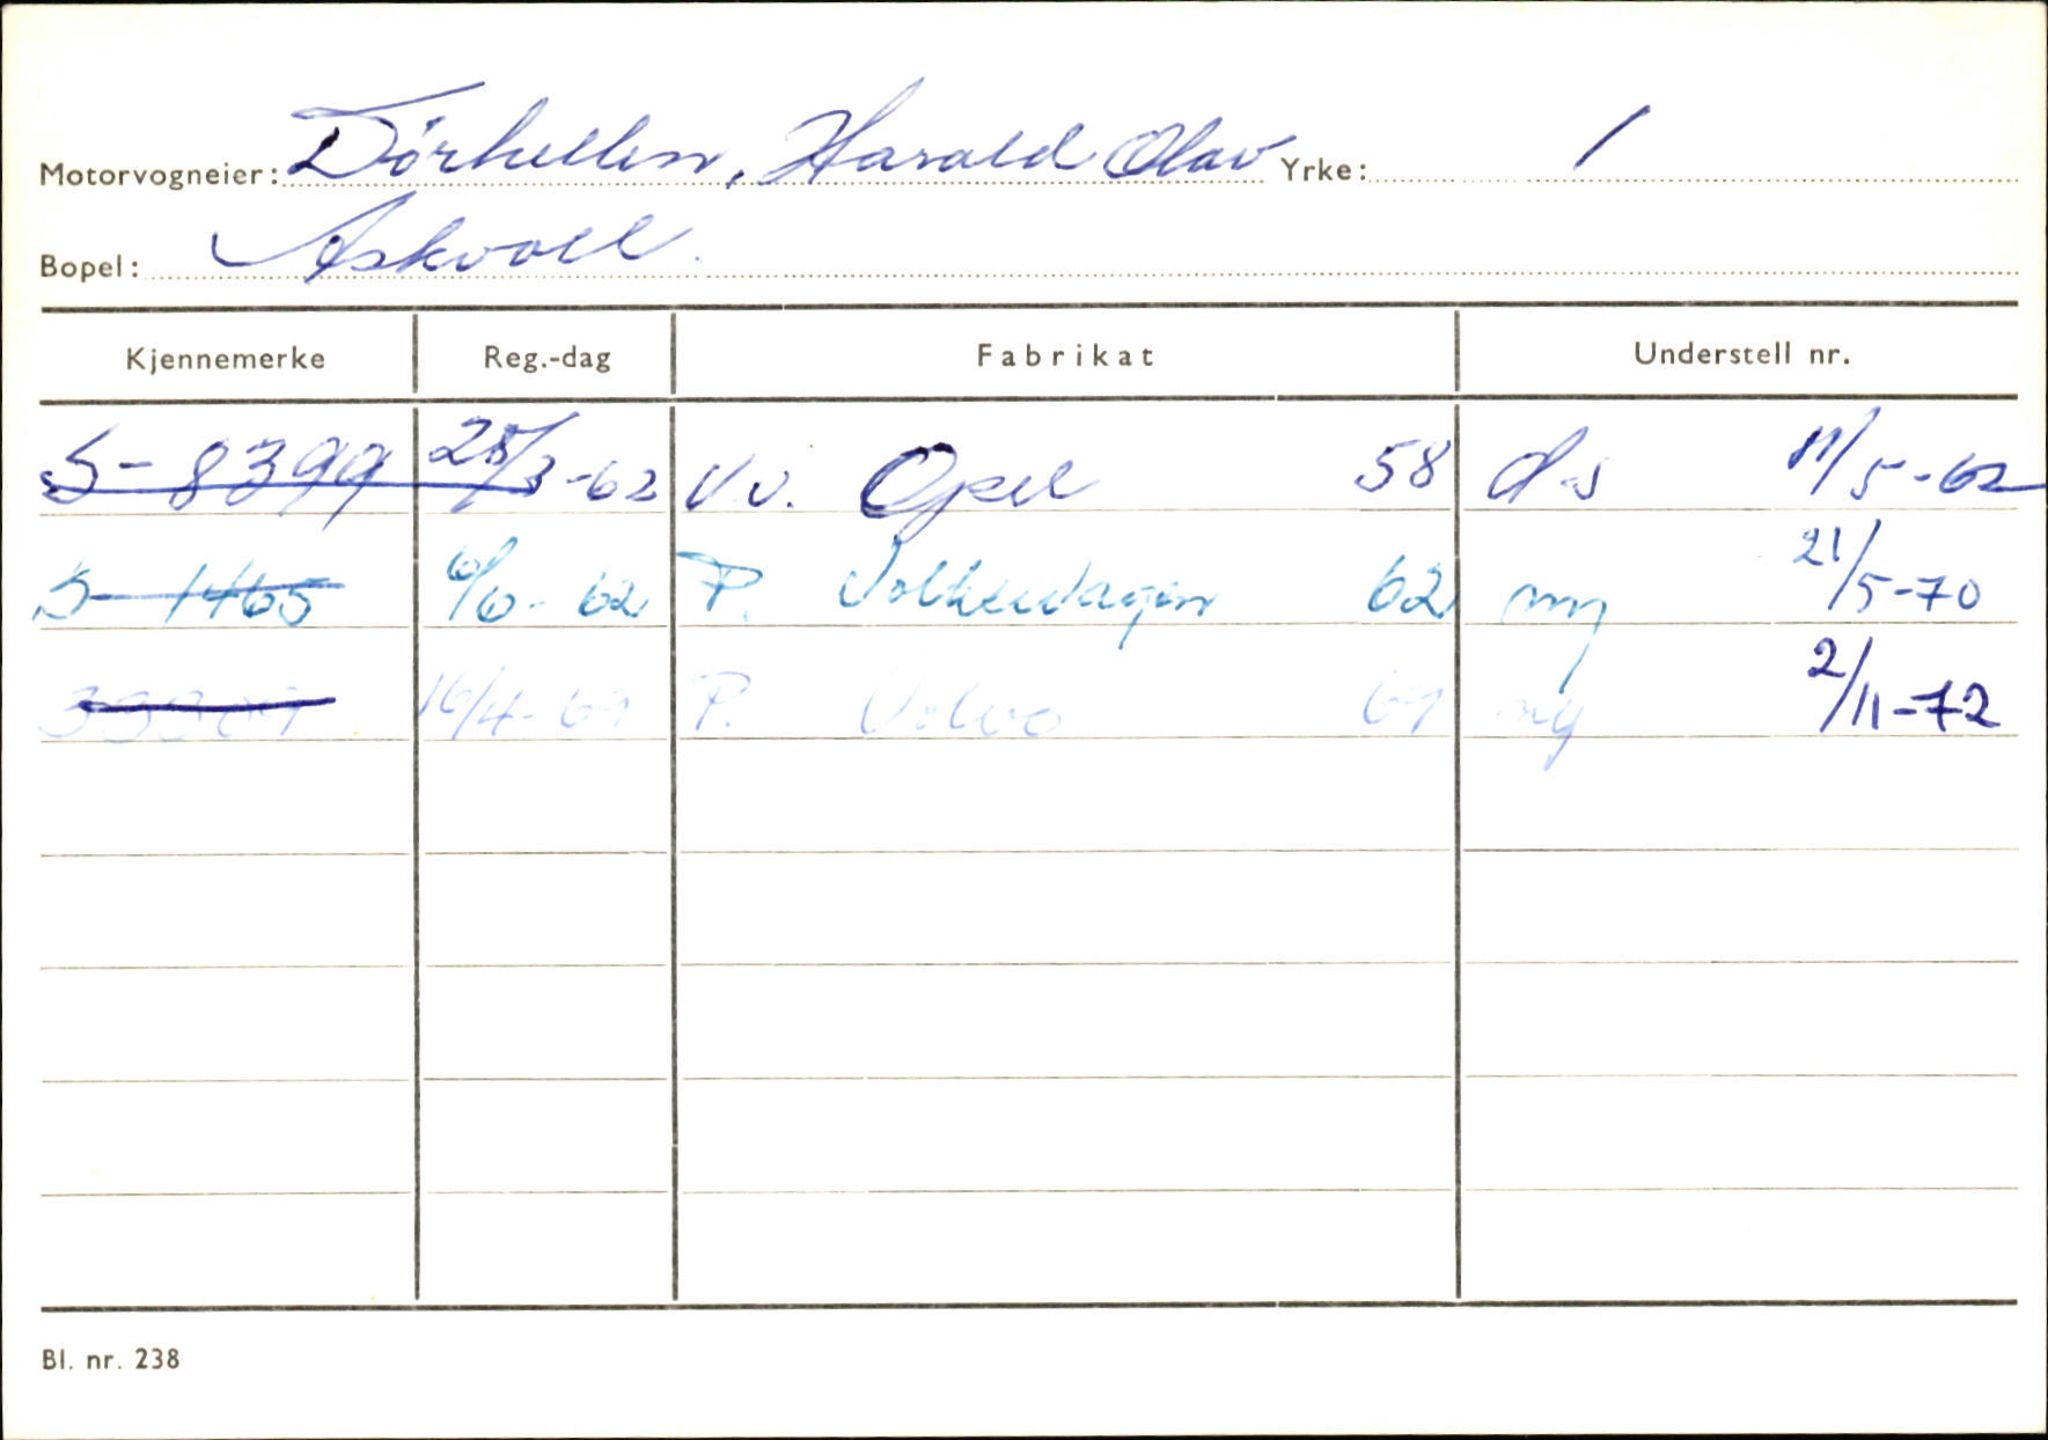 Motorvogneier: Dörhellen, Harald Olav Yrke: /
Bopel: Askvoll.
Kjennemerke Reg.-dag Fabrikat Understell nr.
S-8399 28/3-62 V.v. Opel 58 d-s 11/5-62
S-1465 6/6-62 P. Volkswagen 62 ny 21/5-70
16/4-69 P. Volvo 69 ny 2/11-72
Bl. nr. 238